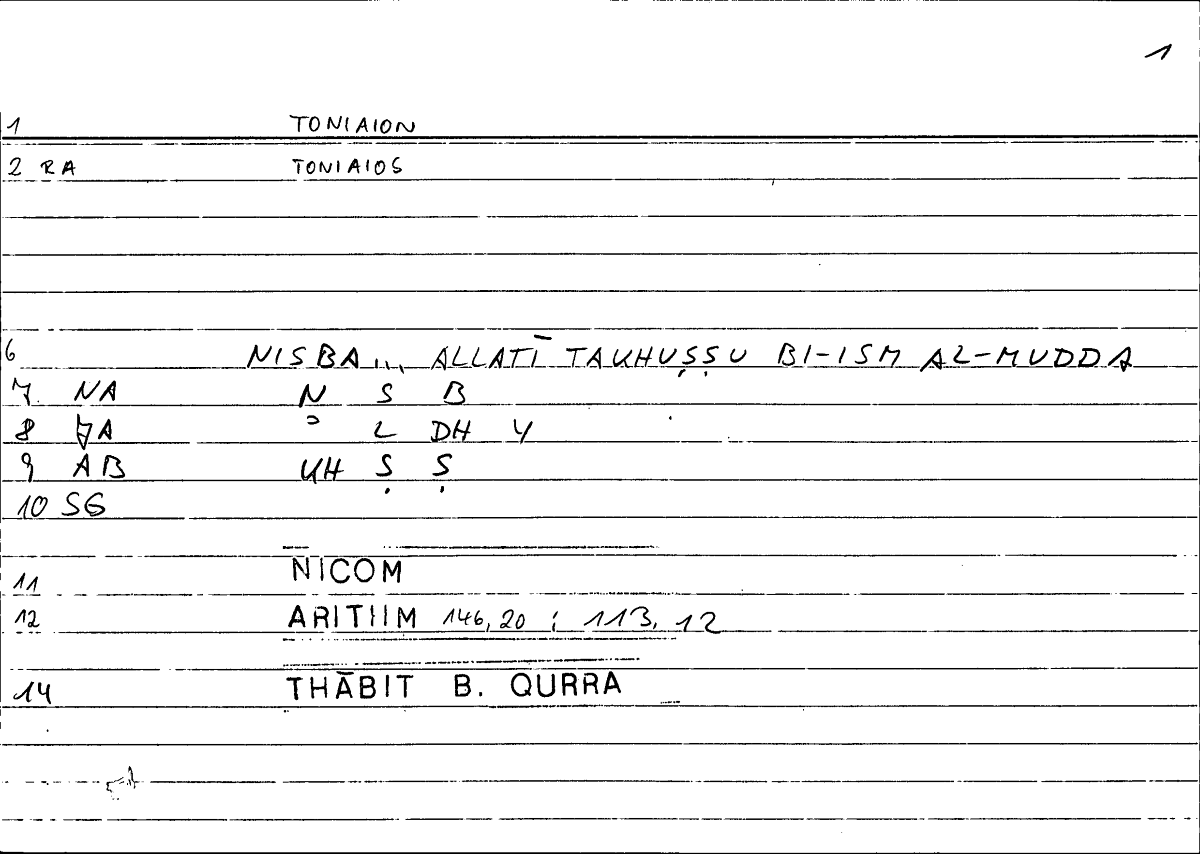 1
1 TONIAION
2 RA TONIAIOS
6 NISBA... ALLATĪ TAKHUṢṢU BI-ISM AL-MUDDA
7 NA N S B
8 ɔ L DH Y
9 AB KH Ṣ Ṣ
10 SG
11 NICOM
12 ARITIIM 146,20 ; 113,12
14 THĀBIT B. QURRA